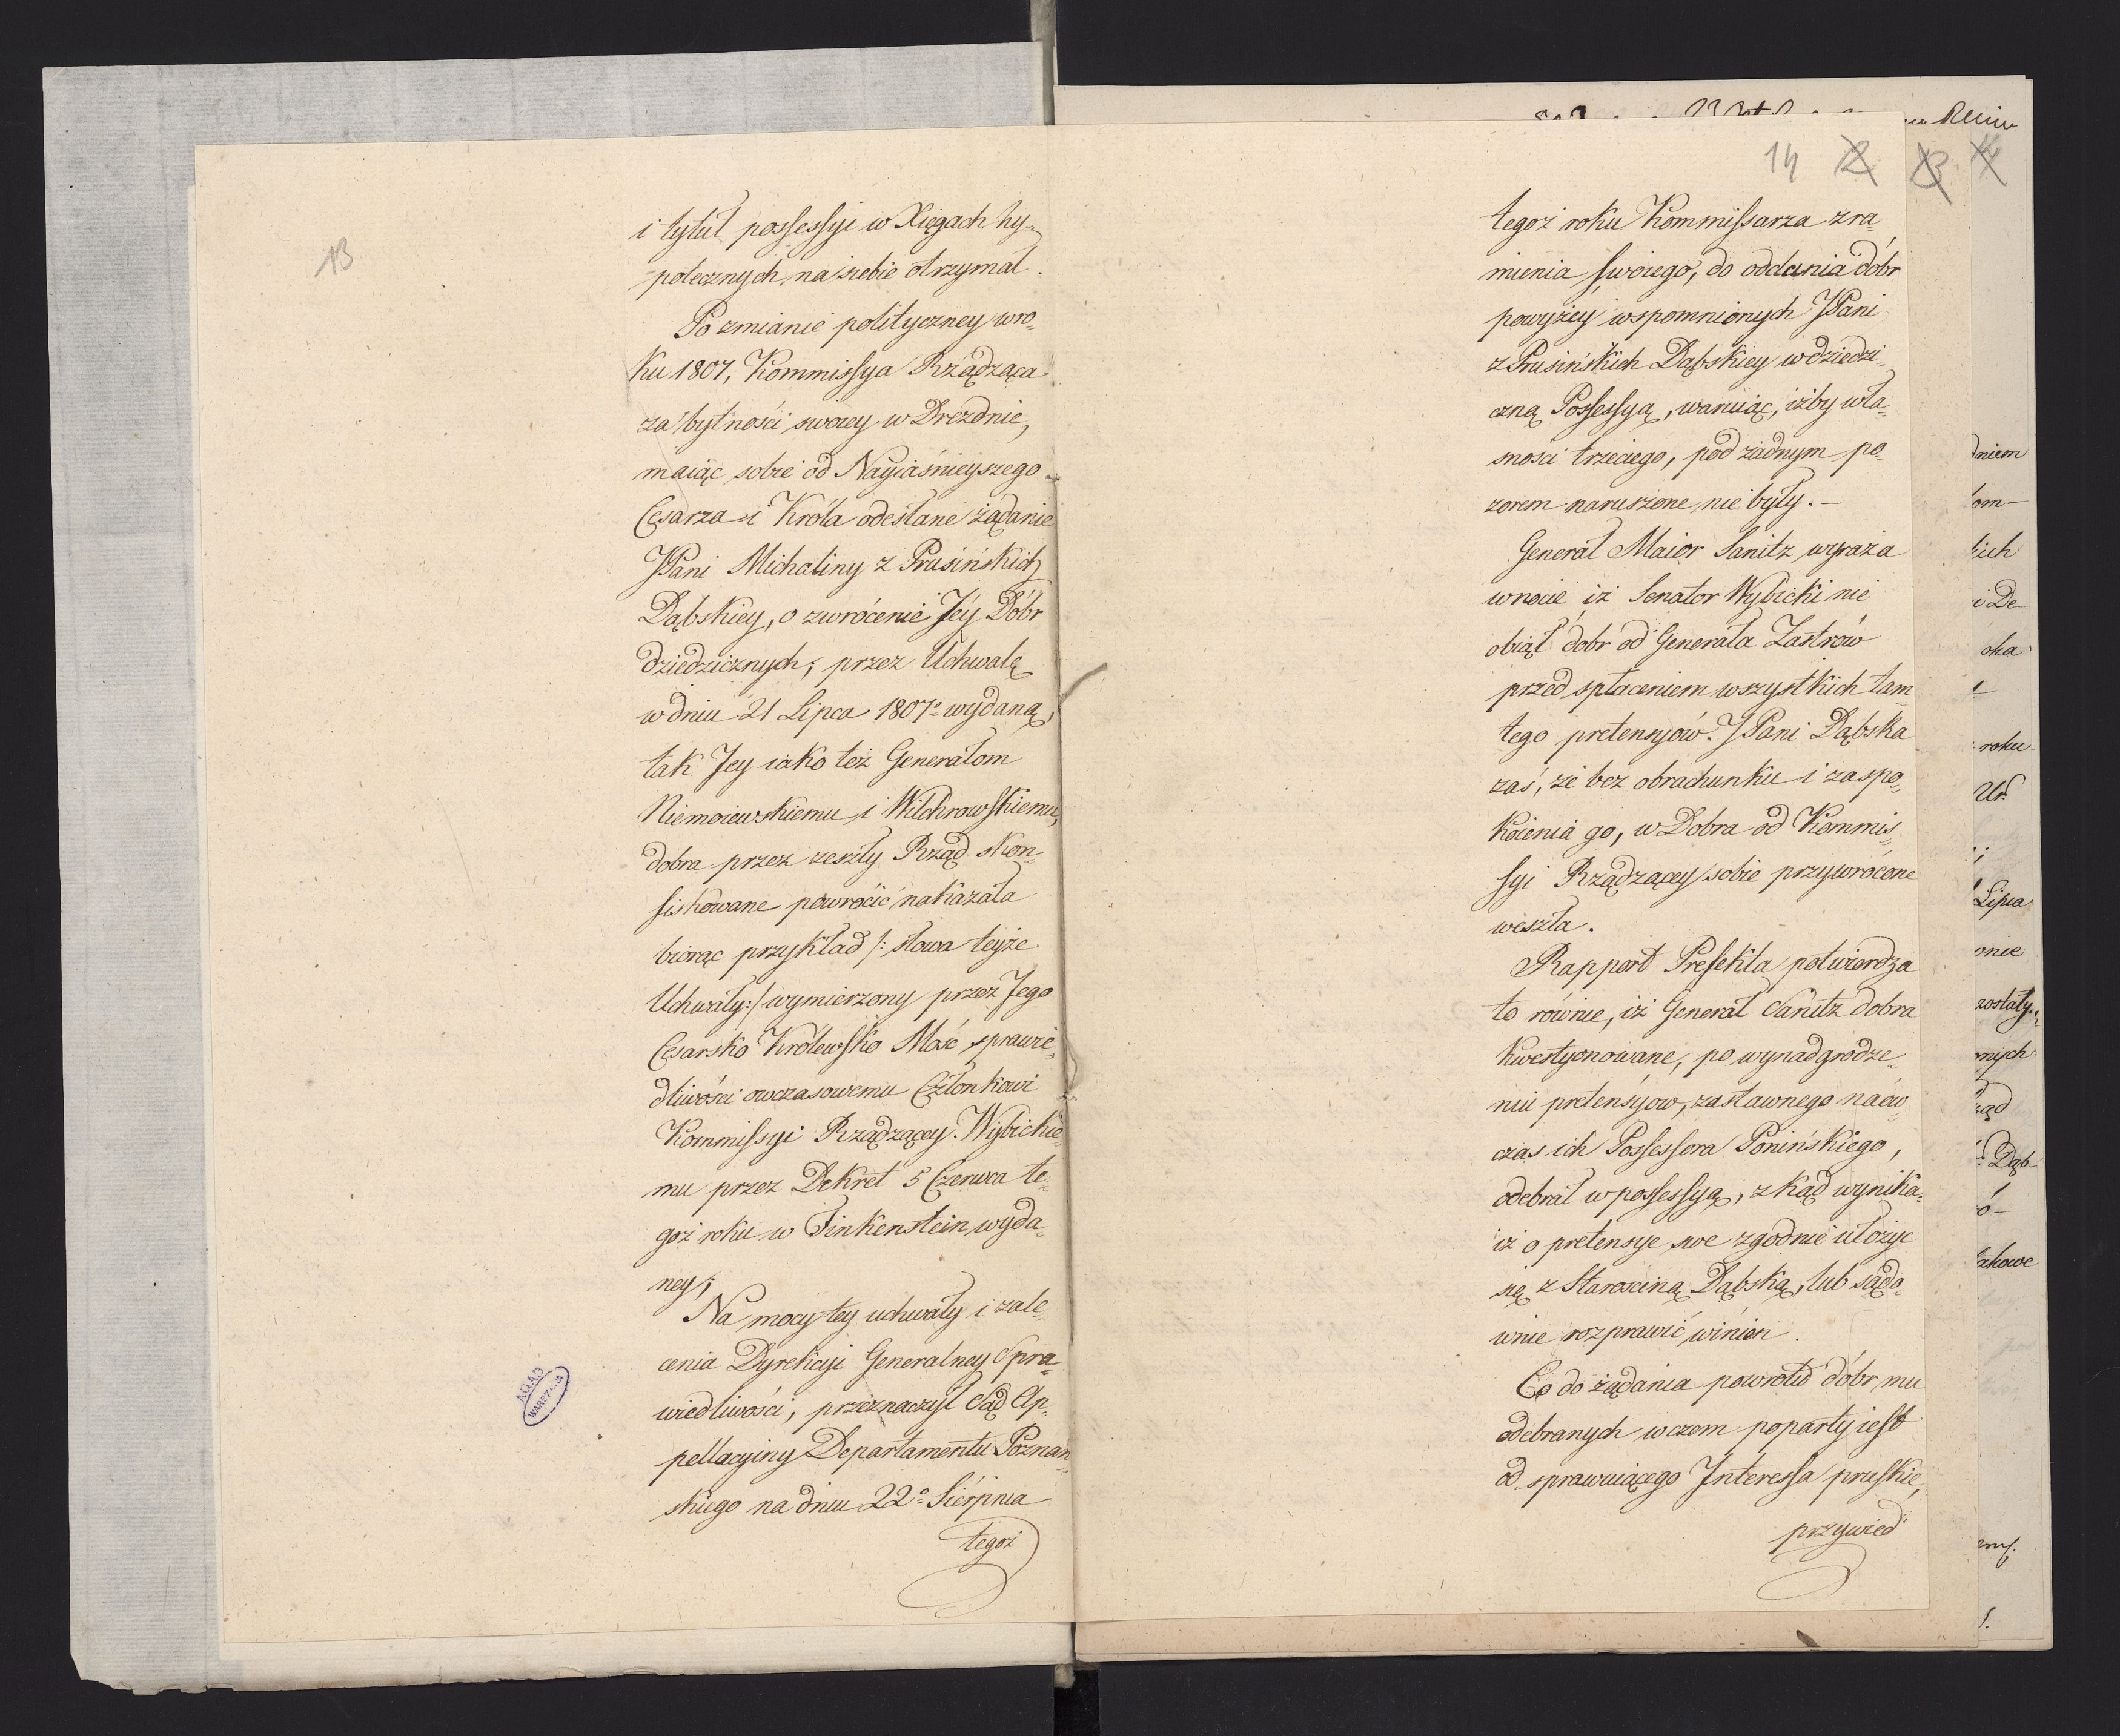 13
i tytuł possessyi w Xięgach hy„
potecznych na siebie otrzymał.
Po zmianie polityczney w ro„
ku 1807, Kommissya Rządząca
za bytności swoiey w Dreznie,
maiąc sobie od Nayiaśnieyszego
Cesarza i Króla odesłane żądanie
JPani Michaliny z Prusińskich
Dąbskiey, o zwrócenie Jéy Dóbr
dziedzicznych; przez Uchwałę
w dniu 21 Lipca 1807º wydaną,
tak Jey iako też Generałom
Niemoiewskiemu i Wilchrowskiemu,
dobra przez zeszły Rząd skon„
fiskowane powrócić nakazała
biorąc przykład /: słowa teyże
Uchwały :/ wymierzony przez Jego
Cesarsko Królewsko Mość sprawie„
dliwości owczasowemu Członkowi
Kommissyi Rządzącey Wybickie„
mu przez Dekret 5 Czerwca te„
goż roku w Finkenstein wyda„
ney;
Na mocy tey uchwały i zale„
cenia Dyrekcyi Generalney Spra„
wiedliwości, przeznaczył Sąd Ap„
pellacyiny Departamentu Poznań„
skiego na dniu 22º Sierpnia
tegoż
AGAD
WARSZAWA
14 12 13 14
tegoż roku Kommissarza z ra„
mienia swoiego, do oddania dóbr
powyżey wspomnionych JPani
z Prusińskich Dąbskiey w dziedzi„
czną Possessyą, waruiąc, iżby wła„
sności trzeciego, pod żadnym po„
zorem naruszone nie były. –
Generał Maior Sanitz wyraża
w nocie iż Senator Wybicki nie
obiął dóbr od Generała Zastrów
przed spłaceniem wszystkich tam„
tego pretensyów. JPani Dąbska
zaś, że bez obrachunku i zaspo„
koienia go, w Dobra od Kommis„
syi Rządzącey sobie przywrócone
weszła.
Rapport Prefekta potwierdza
to równie, iż Generał Sanitz dobra
kwestyonowane, po wynadgrodze„
niu pretensyow, zastawnego naów„
czas ich Possessora Ponińskiego,
odebrał w possessyą, zkąd wynika„
iż o pretensye swe zgodnie ułożyc
się z Starosciną Dąbską, lub sądo„
wnie rozprawić winien.
Co do żądania powrotu dóbr mu
odebranych w czem poparty iest
od sprawuiącego Interessa pruskie,
przywied„
dniem
om–
kich
i De
oka
roku
Ur.
Lipca
onie
zostały„
nych
ząd
Dąb–
ó–
zkowe